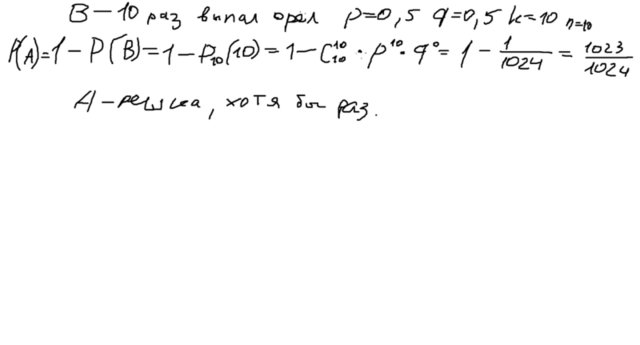 B – 10 раз выпал орёл p=0,5 q=0,5 k=10 n=10
P(A)=1-P(B)=1-P₁₀(10)=1-C₁₀¹⁰·p¹⁰·q⁰=1-1/1024=1023/1024
A-решка, хотя бы раз.